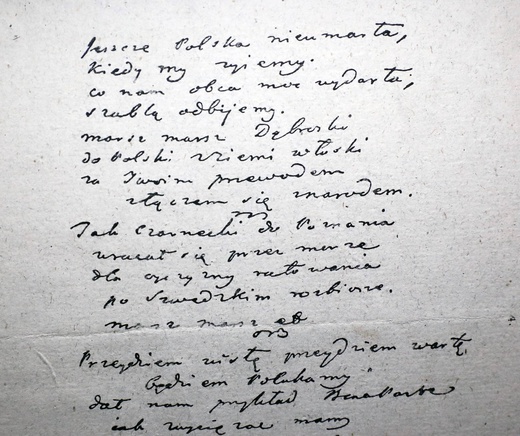 Jeszcze Polska nieumarła,
kiedy my żyjemy.
co nam obca moc wydarła,
szablą odbijemy.
marsz marsz Dąbroski
do Polski z ziemi włoski
za Twoim przewodem
złączem się znarodem.
Jak Czarnecki do Poznania
wracał się przez morze
dla ojczyzny ratowania
po Szwedzkim rozbiorze.
marsz marsz
Przejdziem wisłę przejdziem wartę
będziem Polakamy
dał nam przykład Bonaparte
jak zwyciężać mamy